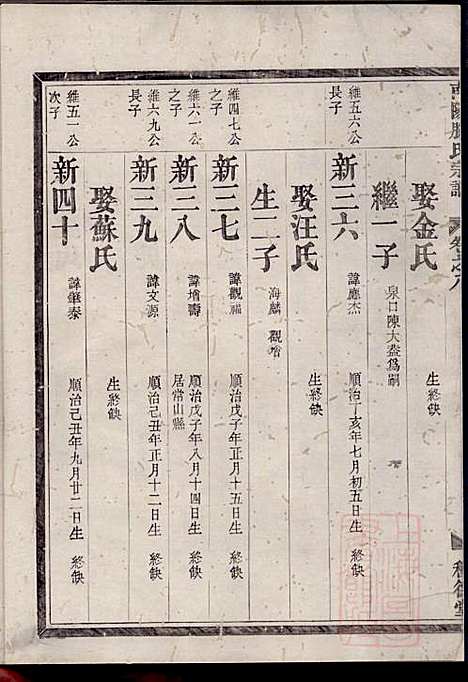 南陽滕氏宗譜 卷之八
娶金氏 生終缺
繼一子 泉口陳大盛爲嗣
維五六公長子 新三六 諱應杰 順治丁亥年七月初五日生 終缺
娶汪氏 生終缺
生二子 海麟 觀增
維四七公之子 新三七 諱觀福 順治戊子年正月十五日生 終缺
維六一公之子 新三八 諱增壽 順治戊子年八月十四日生 終缺 居常山縣
維六九公長子 新三九 諱文源 順治己丑年正月十二日生 終缺
娶蘇氏 生終缺
維五一公次子 新四十 諱肇泰 順治己丑年九月廿二日生 終缺